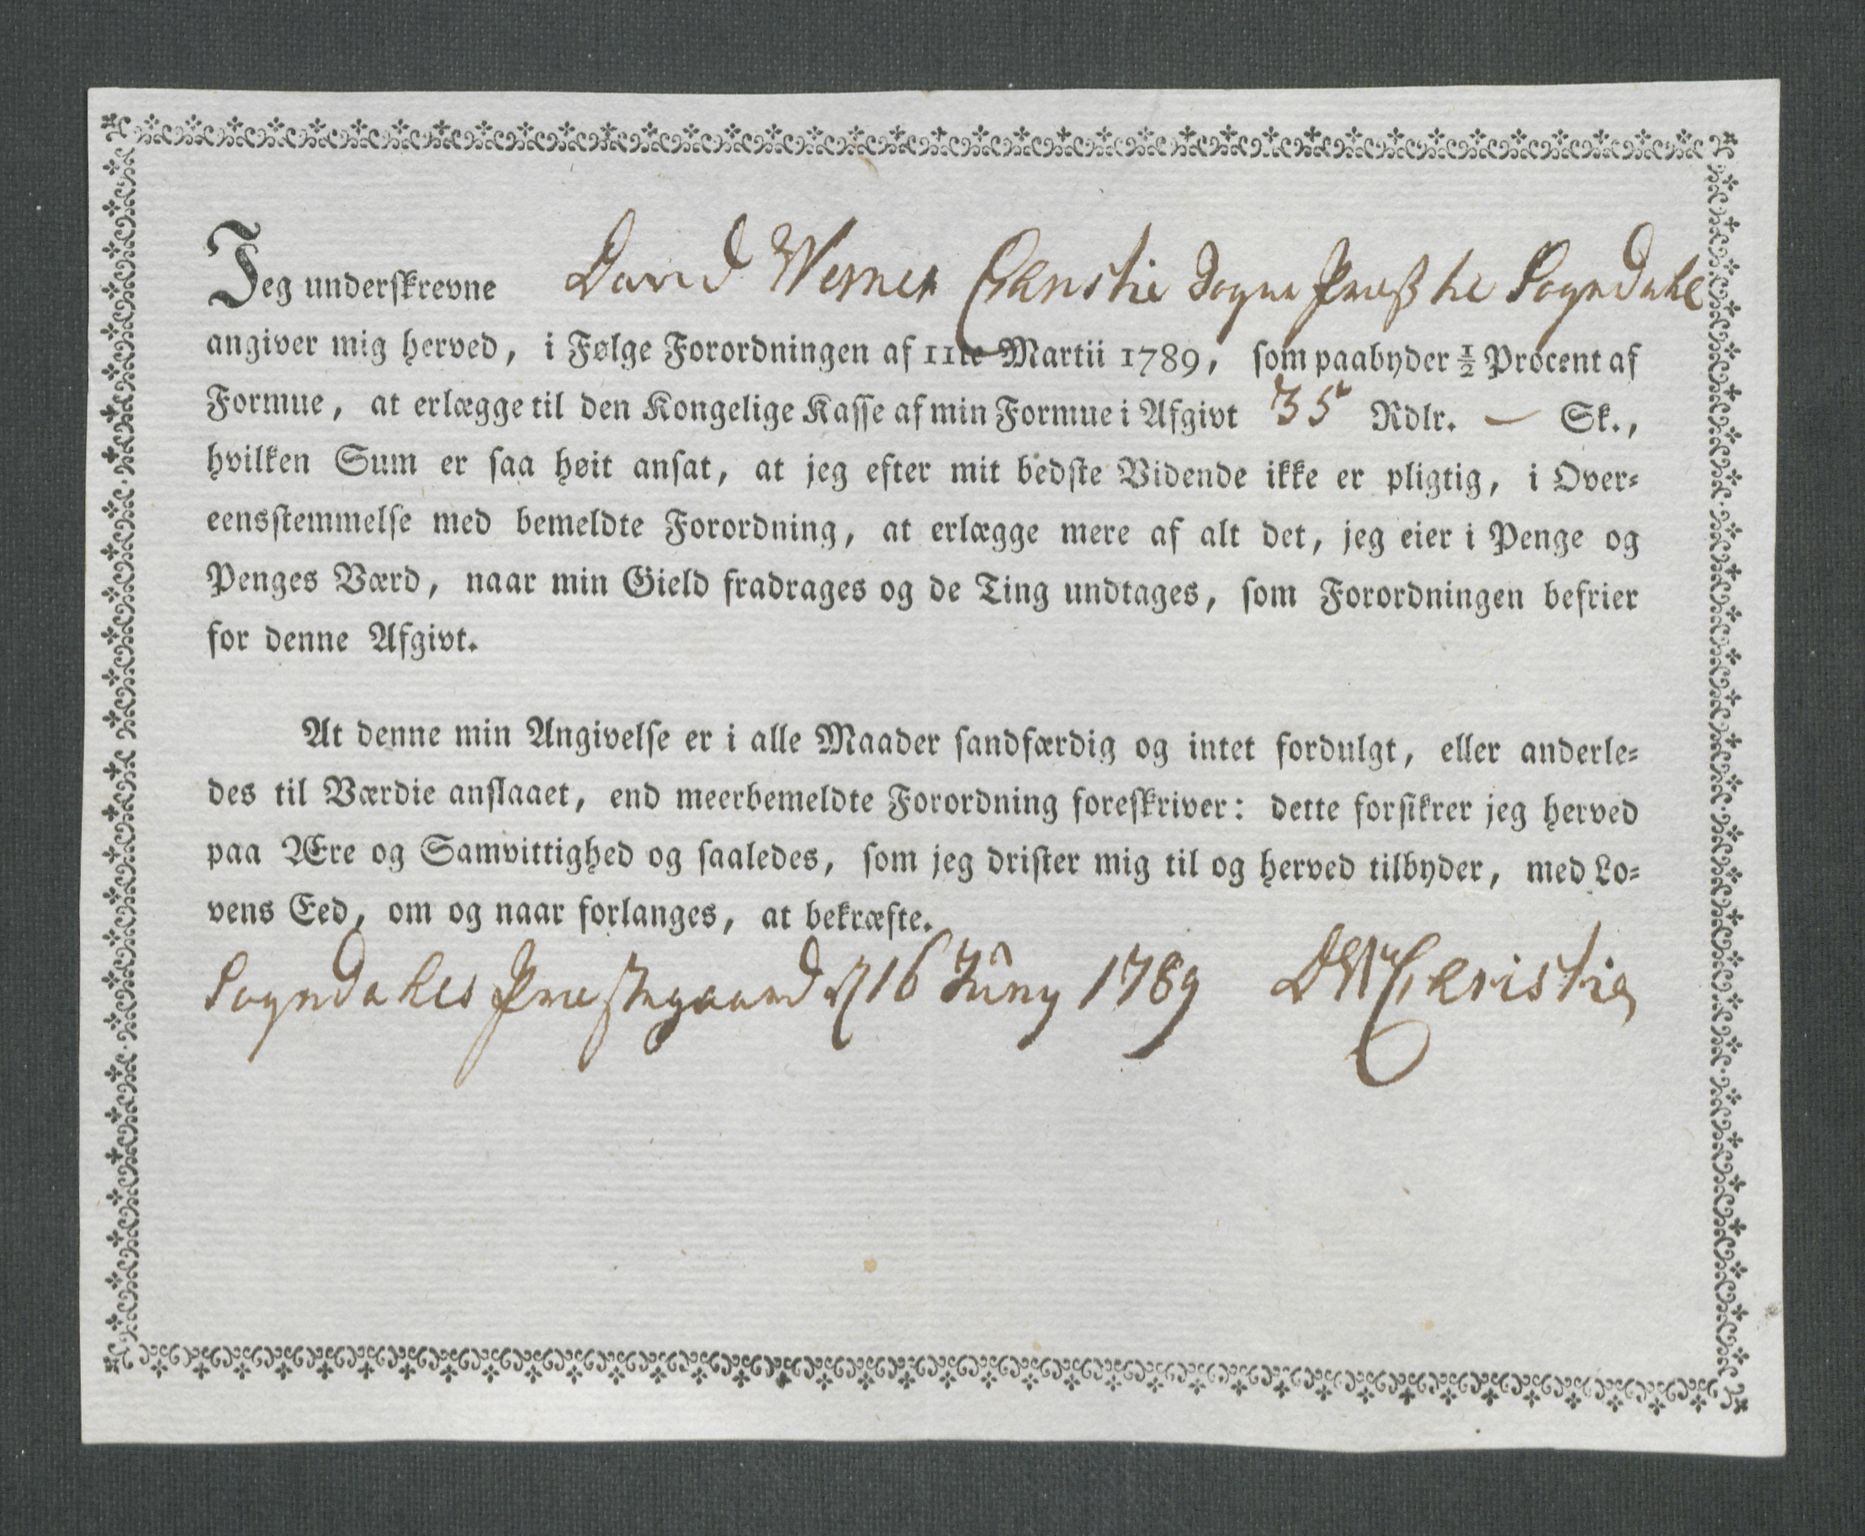 Jeg underskrevne David Werner Christie Sogne Præst te Sogndahl
angiver mig herved, i Følge Forordningen af 11te Martii 1789, som paabyder ½ Procent af
Formue, at erlægge til den Kongelige Kasse af min Formue i Afgivt 35 Rdlr. — Sk.,
hvilken Sum er saa høit ansat, at jeg efter mit bedste Vidende ikke er pligtig, i Over-
eensstemmelse med bemeldte Forordning, at erlægge mere af alt det, jeg eier i Penge og
Penges Værd, naar min Gield fradrages og de Ting undtages, som Forordningen befrier
for denne Afgivt.
At denne min Angivelse er i alle Maader sandfærdig og intet fordulgt, eller anderle-
des til Værdie anslaaet, end meerbemeldte Forordning foreskriver: dette forsikrer jeg herved
paa Ære og Samvittighed og saaledes, som jeg drister mig til og herved tilbyder, med Lo-
vens Eed, om og naar forlanges, at bekræfte.
Sogndahls Præstegaard d 16 Juny 1789 DWChristie